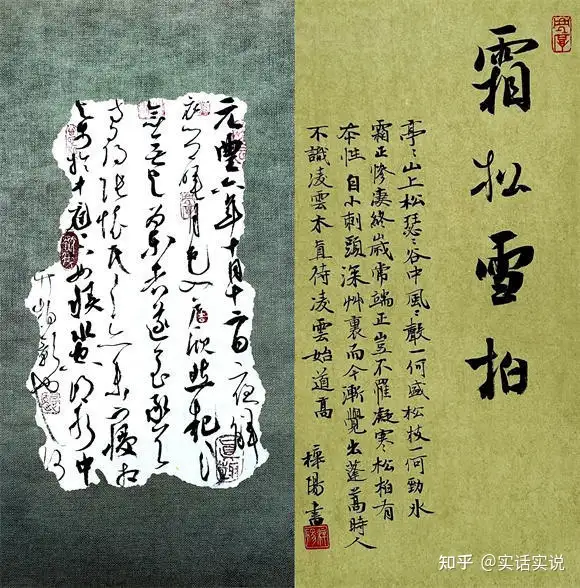 霜松雪柏
亭〻山上松瑟〻谷中風〻嚴一何盛松枝一何勁氷
霜正慘淒終歲常端正豈不罹凝寒松柏有
本性自小刺頭深艸裏而今漸覺出蓬蒿時人
不識凌雲木直待凌雲始道高
陽書
元豐六年十月十二日夜解
衣欲睡月色入户欣然起行
念无与樂者遂至承天
寺尋張懷民亦未寢相
与步於中庭下如積水空明水中
竹柏影也
知乎 @实话实说